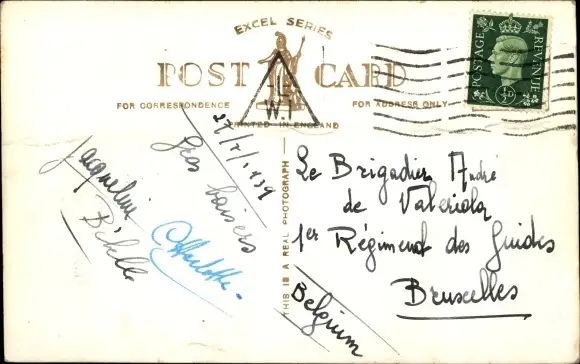 EXCEL SERIES
POST CARD
FOR CORRESPONDENCE
FOR ADDRESS ONLY
W.1
PRINTED IN ENGLAND
POSTAGE
REVENUE
½D
27/7/1939
Gros baisers
Jacqueline
Charlotte
THIS IS A REAL PHOTOGRAPH
Le Brigadier André
de Valeriola
1er Régiment des Guides
Bruxelles
Belgium